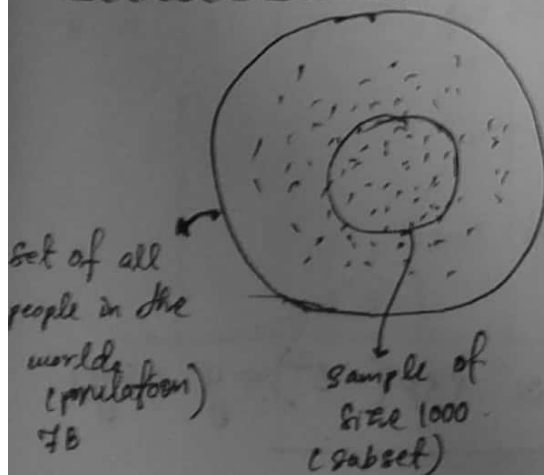 set of all
people in the
world,
(population)
7B
sample of
size 1000
(subset)